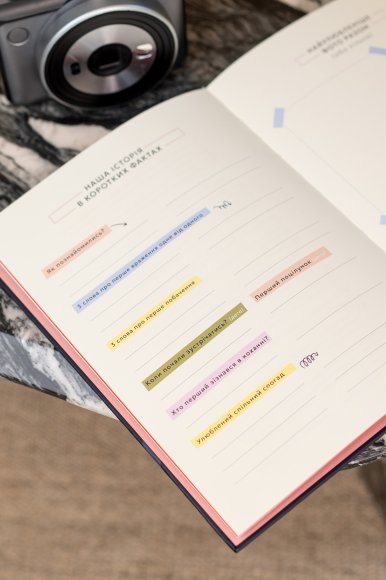 НАША ІСТОРІЯ
В КОРОТКИХ ФАКТАХ
Як познайомились?
3 слова про перше враження одне від одного
3 слова про перше побачення
Коли почали зустрічатись?
Перший поцілунок
Хто перший зізнався в коханні?
Улюблений спільний спогад
НАЙУЛЮБЛЕНІШЕ
ФОТО РАЗОМ